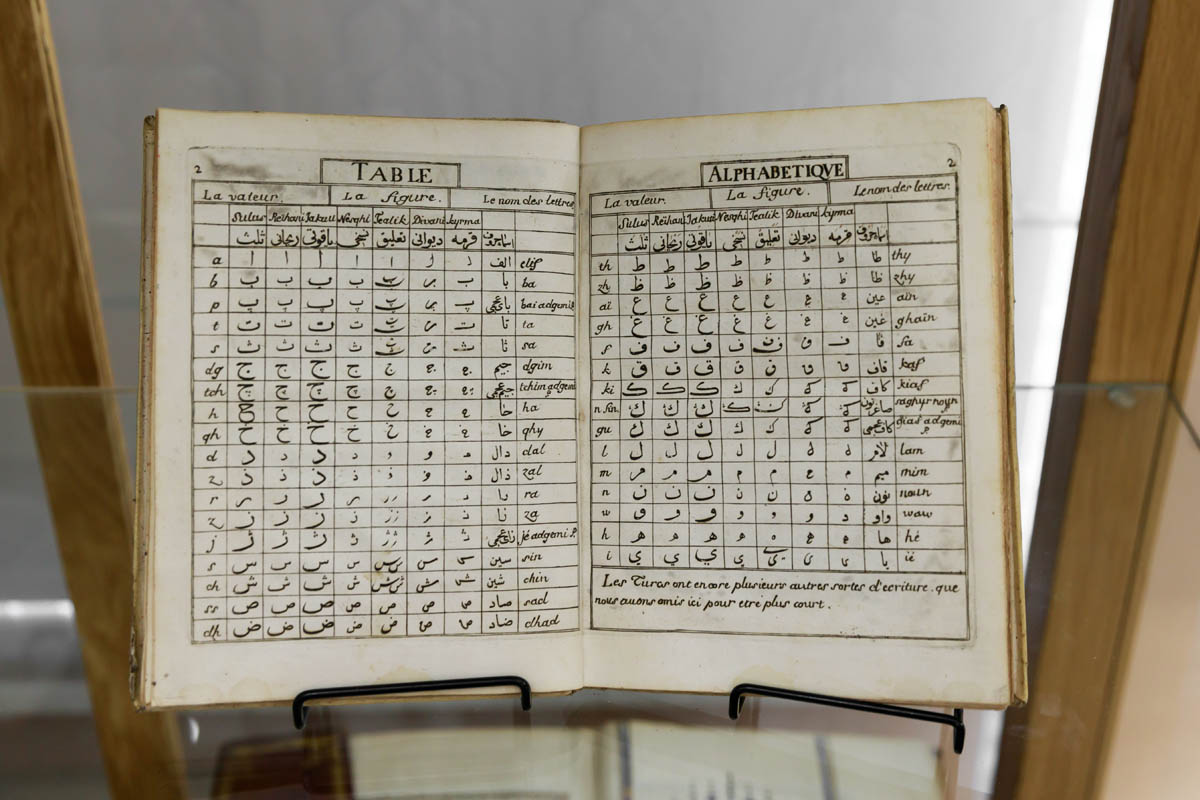 2 TABLE
La valeur. La figure. Le nom des lettres
Sulus Reihani Jakuti Nesghi Tealik Divani kyrma
ثلث ريحانی ياقوتی نسخی تعليق ديوانی قرمه اسامئ حروف
a ا ا ا ا ا ا ا الف elif
b ب ب ب ب ب ب ب با ba
p پ پ پ پ پ پ پ باء عجمی bai adgemi
t ت ت ت ت ت ت ت تا ta
s ث ث ث ث ث ث ث ثا sa
dg ج ج ج ج ج ج ج جيم dgim
tch چ چ چ چ چ چ چ جيم عجمی tchim adgemi
h ح ح ح ح ح ح ح حا ha
gh خ خ خ خ خ خ خ خا ghy
d د د د د د د د دال dal
z ذ ذ ذ ذ ذ ذ ذ ذال zal
r ر ر ر ر ر ر ر را ra
z ز ز ز ز ز ز ز زا za
j ژ ژ ژ ژ ژ ژ ژ زاء عجمی jé adgemi
s س س س س س س س سين sin
ch ش ش ش ش ش ش ش شين chin
ss ص ص ص ص ص ص ص صاد sad
dh ض ض ض ض ض ض ض ضاد dhad
ALPHABETIQVE 2
La valeur. La figure. Le nom des lettres.
Sulus Reihani Jakuti Nesghi Tealik Divani kyrma
ثلث ريحانی ياقوتی نسخی تعليق ديوانی قرمه اسامئ حروف
th ط ط ط ط ط ط ط طا thy
zh ظ ظ ظ ظ ظ ظ ظ ظا zhy
aï ع ع ع ع ع ع ع عين aïn
gh غ غ غ غ غ غ غ غين ghaïn
f ف ف ف ف ف ف ف فا fa
k ق ق ق ق ق ق ق قاف kaf
ki ك ك ك ك ك ك ك كاف kiaf
n sin. ڭ ڭ ڭ ڭ ڭ ڭ ڭ صاغر نون saghyr noun
gu ك ك ك ك ك ك ك كاف عجمی giaf adgemi
l ل ل ل ل ل ل ل لام lam
m م م م م م م م ميم mim
n ن ن ن ن ن ن ن نون noun
w و و و و و و و واو waw
h ه ه ه ه ه ه ه ها hé
i ي ي ي ي ي ي ي يا ié
Les Turcs ont encore plusieurs autres sortes d'ecriture. que
nous auons omis ici pour etre plus court.